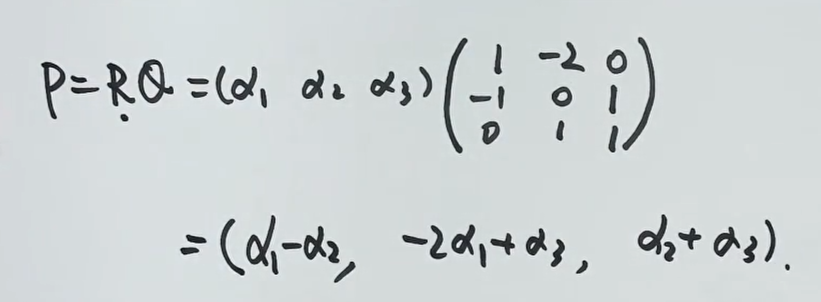 P=RQ=(α₁ α₂ α₃)(1 -2 0
-1 0 1
0 1 1)
=(α₁-α₂, -2α₁+α₃, α₂+α₃).